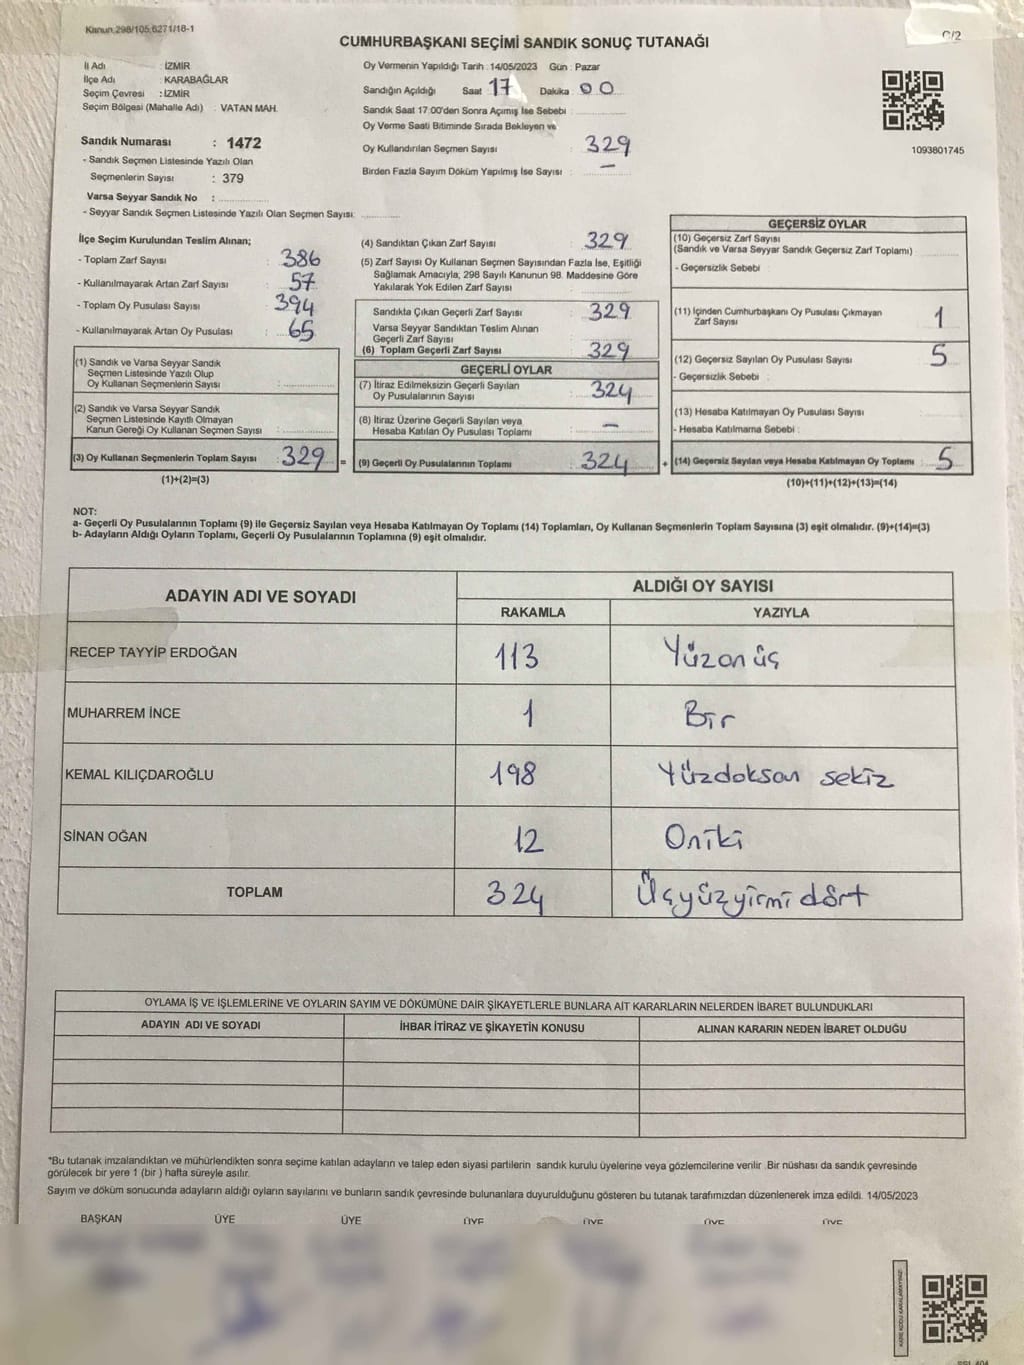 Kanun 298/105,6271/18-1
C/2
CUMHURBAŞKANI SEÇİMİ SANDIK SONUÇ TUTANAĞI
İl Adı : İZMİR
İlçe Adı : KARABAĞLAR
Seçim Çevresi : İZMİR
Seçim Bölgesi (Mahalle Adı) : VATAN MAH.
Sandık Numarası : 1472
- Sandık Seçmen Listesinde Yazılı Olan
Seçmenlerin Sayısı : 379
Varsa Seyyar Sandık No :
- Seyyar Sandık Seçmen Listesinde Yazılı Olan Seçmen Sayısı:
Oy Vermenin Yapıldığı Tarih : 14/05/2023 Gün : Pazar
Sandığın Açıldığı Saat : 17 Dakika : 00
Sandık Saat 17:00'den Sonra Açımış İse Sebebi :
Oy Verme Saati Bitiminde Sırada Bekleyen ve
Oy Kullandırılan Seçmen Sayısı : 329
Birden Fazla Sayım Döküm Yapılmış İse Sayısı : —
1093801745
İlçe Seçim Kurulundan Teslim Alınan;
- Toplam Zarf Sayısı : 386
- Kullanılmayarak Artan Zarf Sayısı : 57
- Toplam Oy Pusulası Sayısı : 394
- Kullanılmayarak Artan Oy Pusulası : 65
(1) Sandık ve Varsa Seyyar Sandık
Seçmen Listesinde Yazılı Olup
Oy Kullanan Seçmenlerin Sayısı :
(2) Sandık ve Varsa Seyyar Sandık
Seçmen Listesinde Kayıtlı Olmayan
Kanun Gereği Oy Kullanan Seçmen Sayısı :
(3) Oy Kullanan Seçmenlerin Toplam Sayısı : 329 =
(1)+(2)=(3)
(4) Sandıktan Çıkan Zarf Sayısı : 329
(5) Zarf Sayısı Oy Kullanan Seçmen Sayısından Fazla İse, Eşitliği
Sağlamak Amacıyla, 298 Sayılı Kanunun 98. Maddesine Göre
Yakılarak Yok Edilen Zarf Sayısı :
Sandıkta Çıkan Geçerli Zarf Sayısı : 329
Varsa Seyyar Sandıktan Teslim Alınan
Geçerli Zarf Sayısı :
(6) Toplam Geçerli Zarf Sayısı : 329
GEÇERLİ OYLAR
(7) İtiraz Edilmeksizin Geçerli Sayılan
Oy Pusulalarının Sayısı : 324
(8) İtiraz Üzerine Geçerli Sayılan veya
Hesaba Katılan Oy Pusulası Toplamı : —
(9) Geçerli Oy Pusulalarının Toplamı : 324 +
GEÇERSİZ OYLAR
(10) Geçersiz Zarf Sayısı
(Sandık ve Varsa Seyyar Sandık Geçersiz Zarf Toplamı) :
- Geçersizlik Sebebi :
(11) İçinden Cumhurbaşkanı Oy Pusulası Çıkmayan
Zarf Sayısı : 1
(12) Geçersiz Sayılan Oy Pusulası Sayısı : 5
- Geçersizlik Sebebi :
(13) Hesaba Katılmayan Oy Pusulası Sayısı :
- Hesaba Katılmama Sebebi :
(14) Geçersiz Sayılan veya Hesaba Katılmayan Oy Toplamı : 5
(10)+(11)+(12)+(13)=(14)
NOT:
a- Geçerli Oy Pusulalarının Toplamı (9) ile Geçersiz Sayılan veya Hesaba Katılmayan Oy Toplamı (14) Toplamları, Oy Kullanan Seçmenlerin Toplam Sayısına (3) eşit olmalıdır. (9)+(14)=(3)
b- Adayların Aldığı Oyların Toplamı, Geçerli Oy Pusulalarının Toplamına (9) eşit olmalıdır.
ADAYIN ADI VE SOYADI
ALDIĞI OY SAYISI
RAKAMLA YAZIYLA
RECEP TAYYİP ERDOĞAN 113 Yüzonüç
MUHARREM İNCE 1 Bir
KEMAL KILIÇDAROĞLU 198 Yüzdoksan sekiz
SİNAN OĞAN 12 Oniki
TOPLAM 324 Üçyüzyirmi dört
OYLAMA İŞ VE İŞLEMLERİNE VE OYLARIN SAYIM VE DÖKÜMÜNE DAİR ŞİKAYETLERLE BUNLARA AİT KARARLARIN NELERDEN İBARET BULUNDUKLARI
ADAYIN ADI VE SOYADI İHBAR İTİRAZ VE ŞİKAYETİN KONUSU ALINAN KARARIN NEDEN İBARET OLDUĞU
*Bu tutanak imzalandıktan ve mühürlendikten sonra seçime katılan adayların ve talep eden siyasi partilerin sandık kurulu üyelerine veya gözlemcilerine verilir .Bir nüshası da sandık çevresinde
görülecek bir yere 1 (bir ) hafta süreyle asılır.
Sayım ve döküm sonucunda adayların aldığı oyların sayılarını ve bunların sandık çevresinde bulunanlara duyurulduğunu gösteren bu tutanak tarafımızdan düzenlenerek imza edildi. 14/05/2023
BAŞKAN ÜYE ÜYE ÜYE ÜYE ÜYE ÜYE
KARE KODU KARALAMAYINIZ!